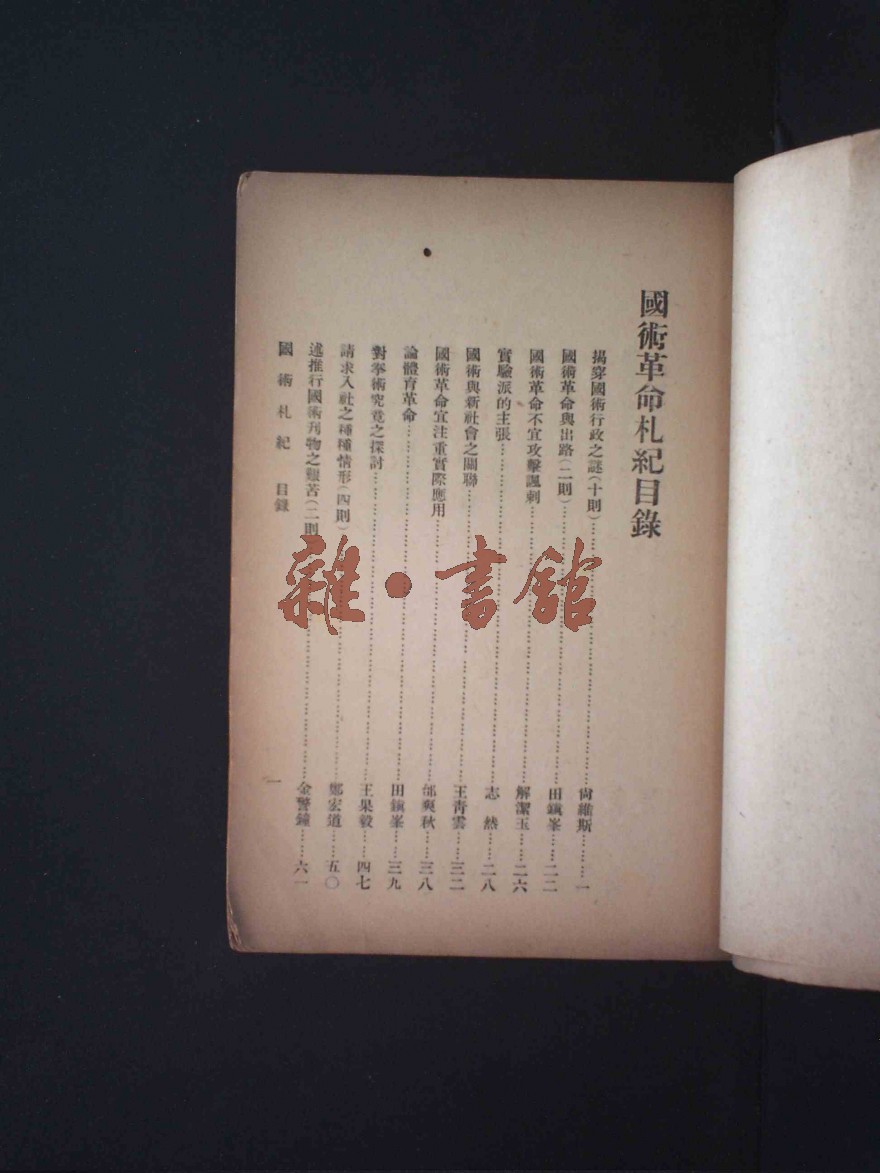 國術革命札紀目錄
揭穿國術行政之謎(十則)……尙維斯……一
國術革命與出路(二則)……田鎭峯……二二
國術革命不宜攻擊諷刺……解潔玉……二六
實驗派的主張……志　然……二八
國術與新社會之關聯……王靑雲……三二
國術革命宜注重實際應用……邰爽秋……三八
論體育革命……田鎭峯……三九
對拳術究竟之探討……王果毅……四七
請求入社之種種情形(四則)……鄭宏道……五〇
述推行國術刋物之艱苦(二則)……金警鐘……六一
國術札紀　目錄
一
雜·書館